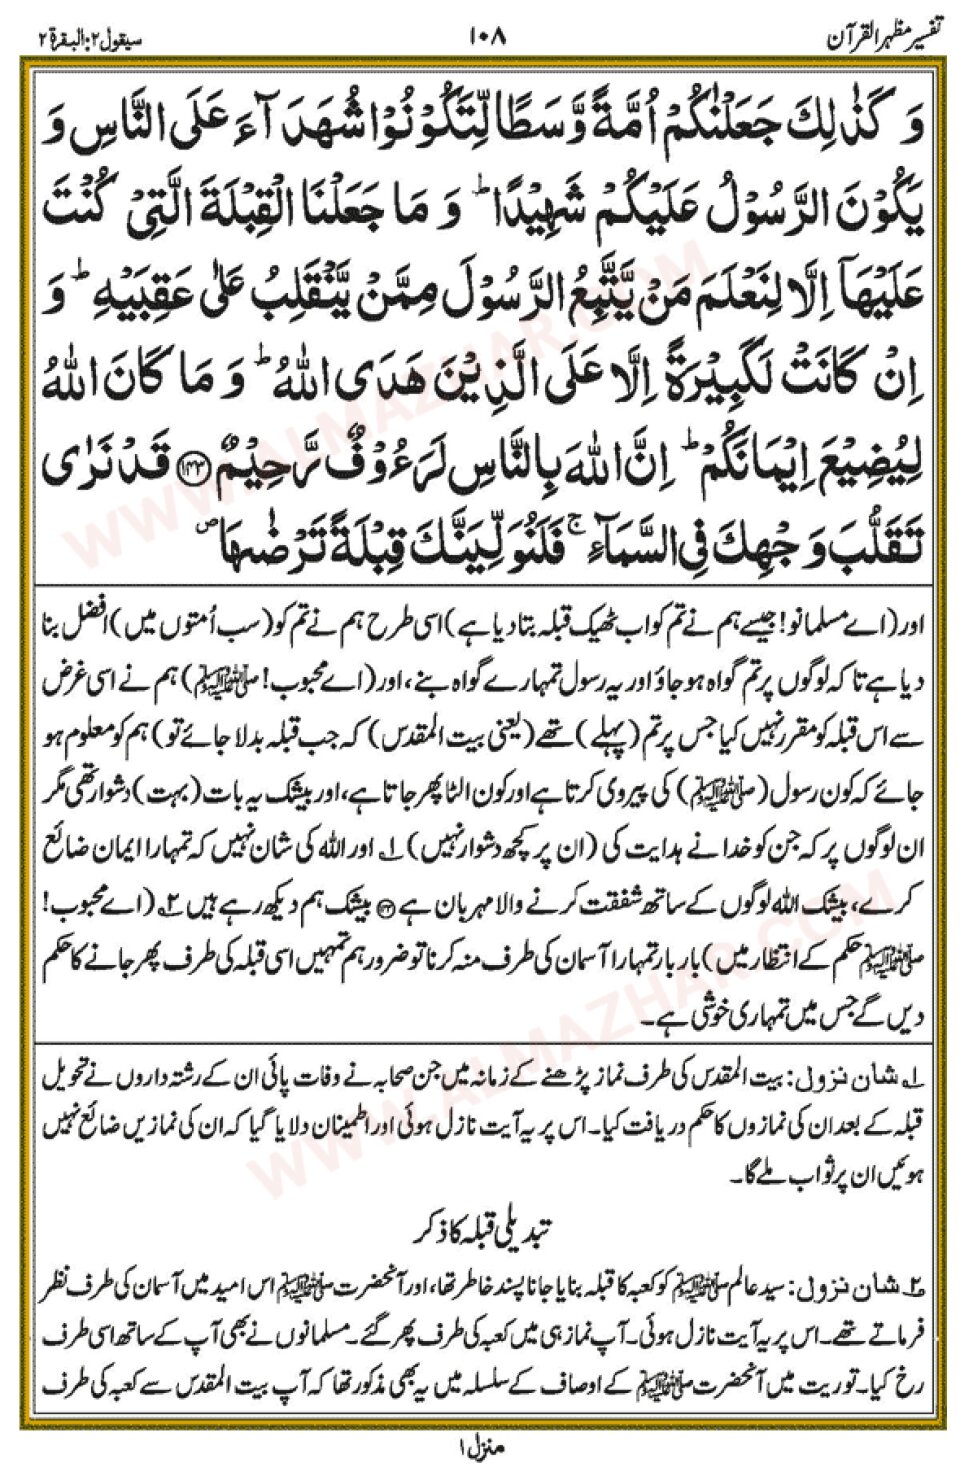 تفسیر مظہر القرآن
۱۰۸
سیقول ۲: البقرۃ ۲
وَ كَذٰلِكَ جَعَلْنٰكُمْ اُمَّةً وَّسَطًا لِّتَكُوْنُوْا شُهَدَآءَ عَلَى النَّاسِ وَ
يَكُوْنَ الرَّسُوْلُ عَلَيْكُمْ شَهِيْدًا ؕ وَ مَا جَعَلْنَا الْقِبْلَةَ الَّتِيْ كُنْتَ
عَلَيْهَاۤ اِلَّا لِنَعْلَمَ مَنْ يَّتَّبِعُ الرَّسُوْلَ مِمَّنْ يَّنْقَلِبُ عَلٰى عَقِبَيْهِ ؕ وَ
اِنْ كَانَتْ لَكَبِيْرَةً اِلَّا عَلَى الَّذِيْنَ هَدَى اللّٰهُ ؕ وَ مَا كَانَ اللّٰهُ
لِيُضِيْعَ اِيْمَانَكُمْ ؕ اِنَّ اللّٰهَ بِالنَّاسِ لَرَءُوْفٌ رَّحِيْمٌ ﴿۱۴۳﴾ قَدْ نَرٰى
تَقَلُّبَ وَجْهِكَ فِي السَّمَآءِ ۚ فَلَنُوَلِّيَنَّكَ قِبْلَةً تَرْضٰىهَا ۪
اور (اے مسلمانو! جیسے ہم نے تم کو اب ٹھیک قبلہ بتا دیا ہے) اسی طرح ہم نے تم کو (سب اُمتوں میں) افضل بنا
دیا ہے تاکہ لوگوں پر تم گواہ ہو جاؤ اور یہ رسول تمہارے گواہ بنے، اور (اے محبوب! ﷺ) ہم نے اسی غرض
سے اس قبلہ کو مقرر نہیں کیا جس پر تم (پہلے) تھے (یعنی بیت المقدس) کہ جب قبلہ بدلا جائے تو) ہم کو معلوم ہو
جائے کہ کون رسول (ﷺ) کی پیروی کرتا ہے اور کون الٹا پھر جاتا ہے، اور بیشک یہ بات (بہت) دشوار تھی مگر
ان لوگوں پر کہ جن کو خدا نے ہدایت کی (ان پر کچھ دشوار نہیں) ۱؎ اور اللہ کی شان نہیں کہ تمہارا ایمان ضائع
کرے، بیشک اللہ لوگوں کے ساتھ شفقت کرنے والا مہربان ہے بیشک ہم دیکھ رہے ہیں ۲؎ (اے محبوب!
ﷺ حکم کے انتظار میں) بار بار تمہارا آسمان کی طرف منہ کرنا تو ضرور ہم تمہیں اسی قبلہ کی طرف پھر جانے کا حکم
دیں گے جس میں تمہاری خوشی ہے۔
۱؎ شان نزول: بیت المقدس کی طرف نماز پڑھنے کے زمانہ میں جن صحابہ نے وفات پائی ان کے رشتہ داروں نے تحویل
قبلہ کے بعد ان کی نمازوں کا حکم دریافت کیا۔ اس پر یہ آیت نازل ہوئی اور اطمینان دلایا گیا کہ ان کی نمازیں ضائع نہیں
ہوئیں ان پر ثواب ملے گا۔
تبدیلی قبلہ کا ذکر
۲؎ شان نزول: سید عالم ﷺ کو کعبہ کا قبلہ بنایا جانا پسند خاطر تھا، اور آنحضرت ﷺ اس امید میں آسمان کی طرف نظر
فرماتے تھے۔ اس پر یہ آیت نازل ہوئی۔ آپ نماز ہی میں کعبہ کی طرف پھر گئے۔ مسلمانوں نے بھی آپ کے ساتھ اسی طرف
رخ کیا۔ توریت میں آنحضرت ﷺ کے اوصاف کے سلسلہ میں یہ بھی مذکور تھا کہ آپ بیت المقدس سے کعبہ کی طرف
منزل ۱
WWW.ALMAZHAR.COM
WWW.ALMAZHAR.COM